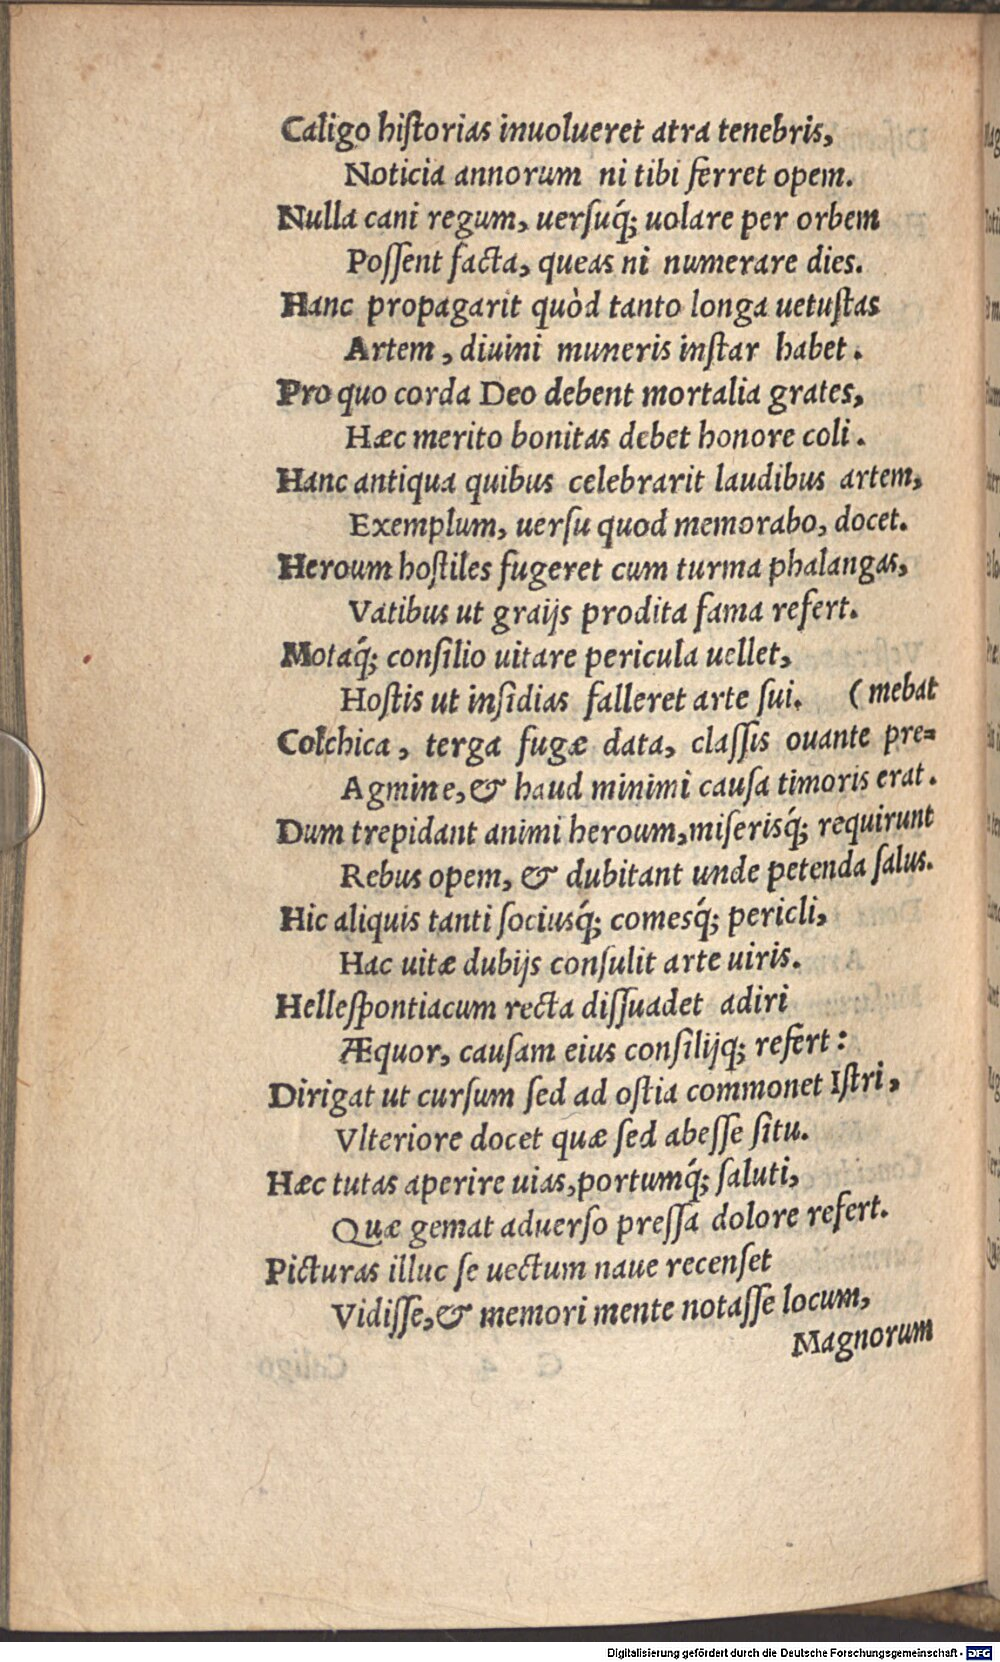 Caligo hiſtorias inuolueret atra tenebris,
Noticia annorum ni tibi ferret opem.
Nulla cani regum, uerſuq́; uolare per orbem
Poſſent facta, queas ni numerare dies.
Hanc propagarit quòd tanto longa uetuſtas
Artem, diuini muneris inſtar habet.
Pro quo corda Deo debent mortalia grates,
Hæc merito bonitas debet honore coli.
Hanc antiqua quibus celebrarit laudibus artem,
Exemplum, uerſu quod memorabo, docet.
Heroum hoſtiles fugeret cum turma phalangas,
Vatibus ut graijs prodita fama refert.
Motaq́; conſilio uitare pericula uellet,
Hoſtis ut inſidias falleret arte ſui. (mebat
Colchica, terga fugæ data, claſſis ouante pre=
Agmine, & haud minimi cauſa timoris erat.
Dum trepidant animi heroum, miſerisq́; requirunt
Rebus opem, & dubitant unde petenda ſalus.
Hic aliquis tanti ſociusq́; comesq́; pericli,
Hac uitæ dubijs conſulit arte uiris.
Helleſpontiacum recta diſſuadet adiri
Æquor, cauſam eius conſilijq; refert:
Dirigat ut curſum ſed ad oſtia commonet Iſtri,
Vlteriore docet quæ ſed abeſſe ſitu.
Hæc tutas aperire uias, portumq́; ſaluti,
Quæ gemat aduerſo preſſa dolore refert.
Picturas illuc ſe uectum naue recenſet
Vidiſſe, & memori mente notaſſe locum,
Magnorum
Digitalisierung gefördert durch die Deutsche Forschungsgemeinschaft - DFG